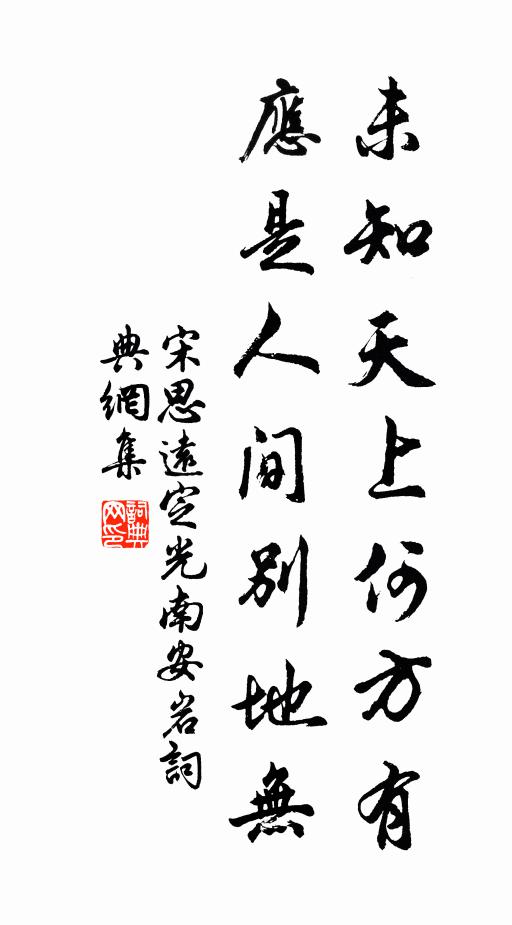 未知天上何方有
應是人間別地無
宋思遠定光南安岩詞
典網集
詞典
网印